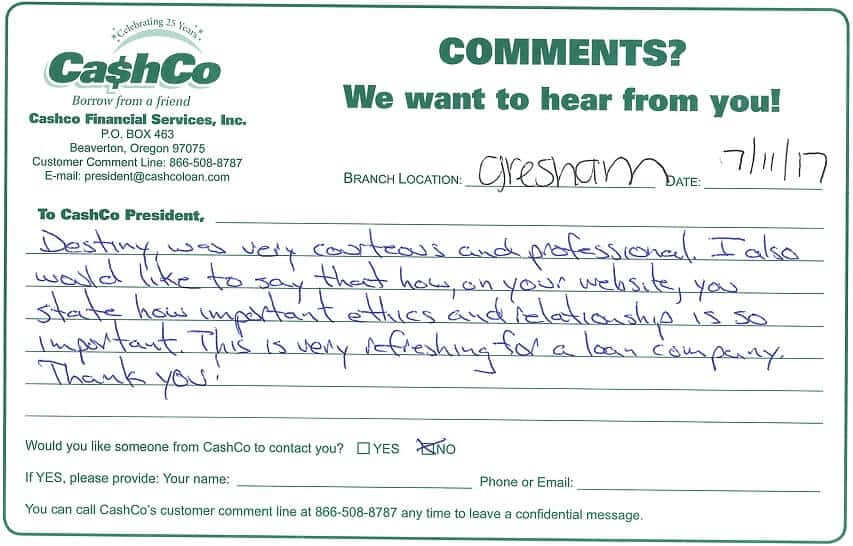 Celebrating 25 Years
Ca$hCo
Borrow from a friend
Cashco Financial Services, Inc.
P.O. BOX 463
Beaverton, Oregon 97075
Customer Comment Line: 866-508-8787
E-mail: president@cashcoloan.com
COMMENTS?
We want to hear from you!
BRANCH LOCATION: Gresham DATE: 7/11/17
To CashCo President,
Destiny, was very courteous and professional. I also
would like to say that how, on your website, you
state how important ethics and relationship is so
important. This is very refreshing for a loan company.
Thank you!
Would you like someone from CashCo to contact you? YES NO
If YES, please provide: Your name: Phone or Email:
You can call CashCo's customer comment line at 866-508-8787 any time to leave a confidential message.